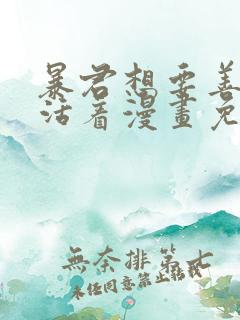 暴君想要善
活着漫畫免
無奈排第七
未经同意禁止转载